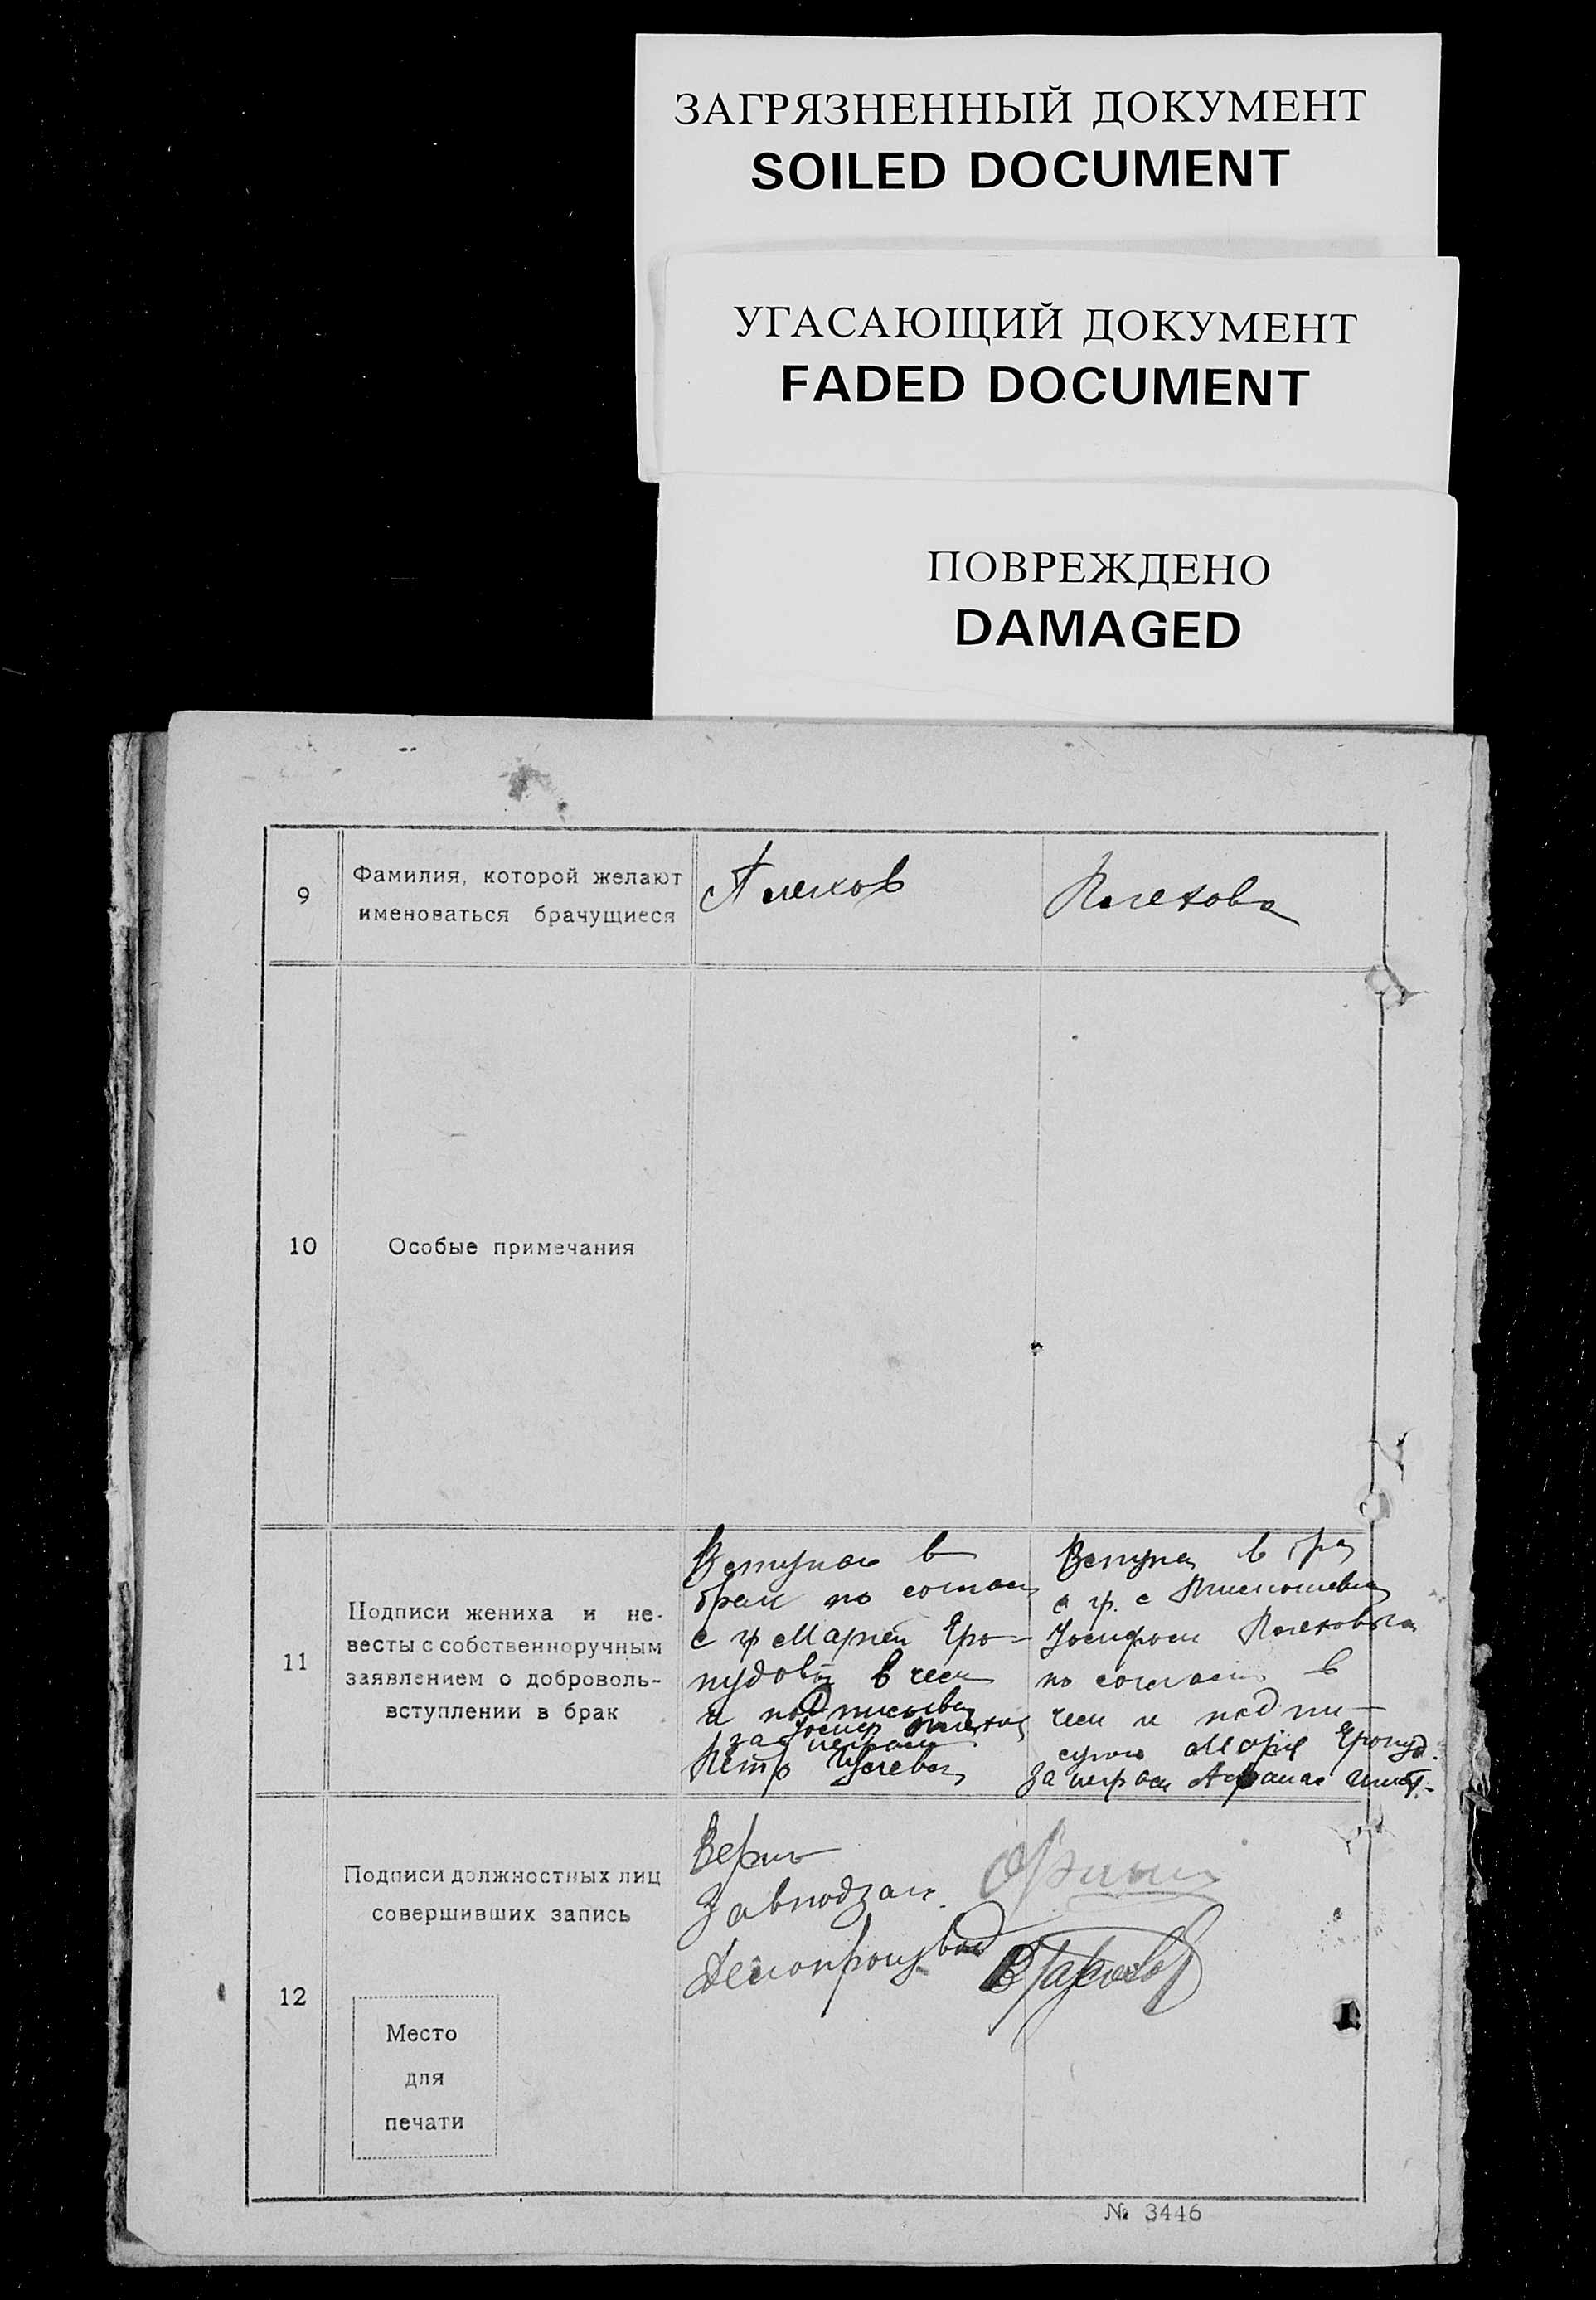 ЗАГРЯЗНЕННЫЙ ДОКУМЕНТ
SOILED DOCUMENT
УГАСАЮЩИЙ ДОКУМЕНТ
FADED DOCUMENT
ПОВРЕЖДЕНО
DAMAGED
9
Фамилия, которой желают
именоваться брачущиеся
Плехов
Плехова
10
Особые примечания
11
Подписи жениха и не-
весты с собственноручным
заявлением о доброволь-
вступлении в брак
Вступаю в
брак по
с гр Марией Еро-
пудовой в чем
и подписываю
за
Петр
Вступаю в
с гр. с
Иосифом Плеховым
по в
чем и подпи-
суюсь Мария Еропуд.
за
12
Подписи должностных лиц
совершивших запись
Верно
Завподзаг.
Место
для
печати
№ 3446